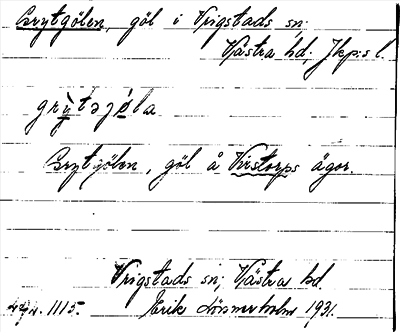 Grytgölen, göl i Vrigstads sn;
Västra hd; Jkp:s l.
grỳtəjǿla
Grytgölen, göl å Virstorps ägor.
Vrigstads sn; Västra hd
1115. Erik Lönnerholm 1931.